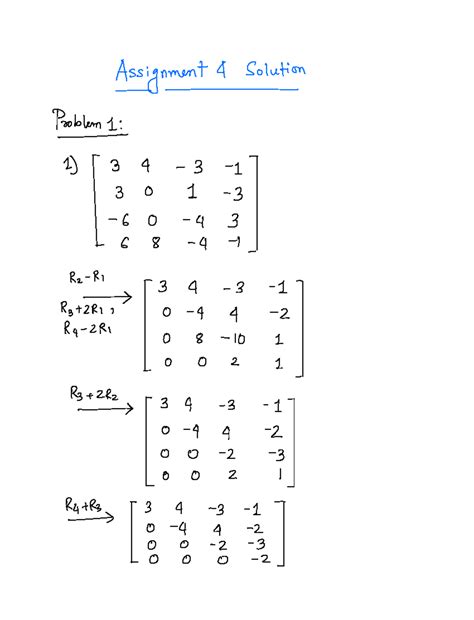 Assignment 4 Solution
Problem 1:
1) [ 3 4 -3 -1
3 0 1 -3
-6 0 -4 3
6 8 -4 -1 ]
R2-R1
R3+2R1,
R4-2R1
[ 3 4 -3 -1
0 -4 4 -2
0 8 -10 1
0 0 2 1 ]
R3+2R2
[ 3 4 -3 -1
0 -4 4 -2
0 0 -2 -3
0 0 2 1 ]
R4+R3
[ 3 4 -3 -1
0 -4 4 -2
0 0 -2 -3
0 0 0 -2 ]